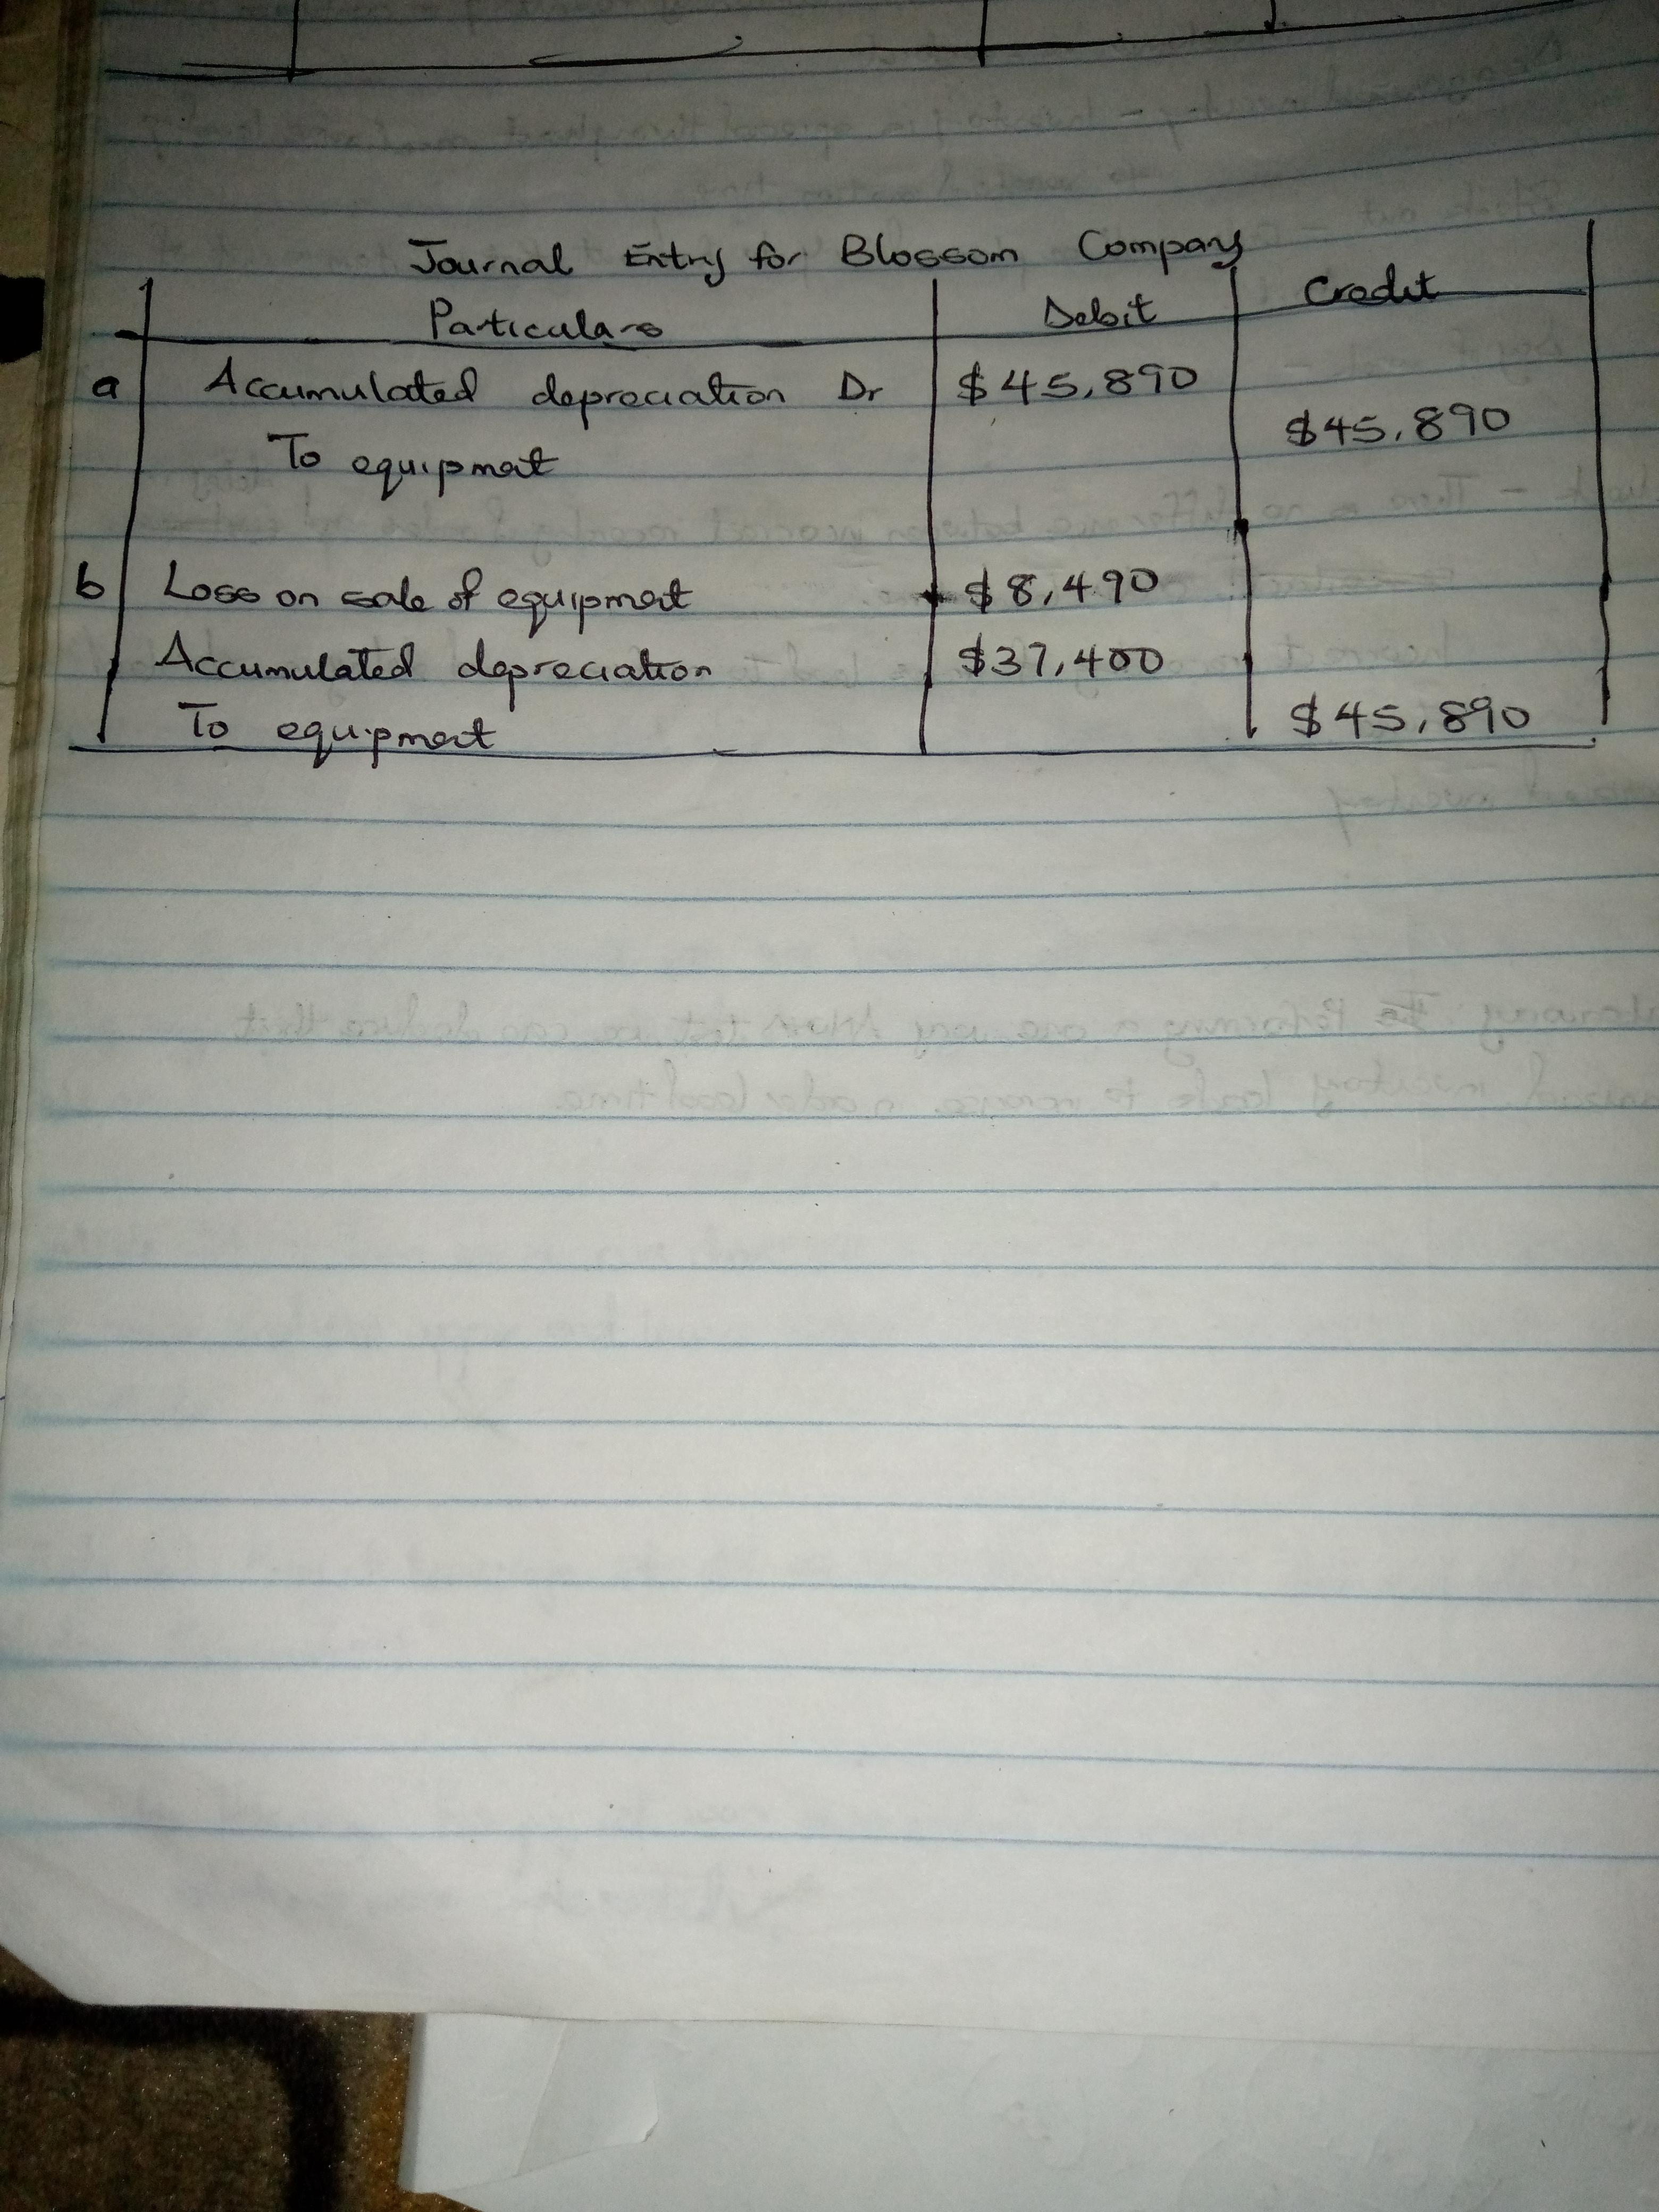 Journal Entry for Blossom Company
Particulars Debit Credit
a Accumulated depreciation Dr $45,890
To equipment $45,890
b Loss on sale of equipment $8,490
Accumulated depreciation $37,400
To equipment $45,890